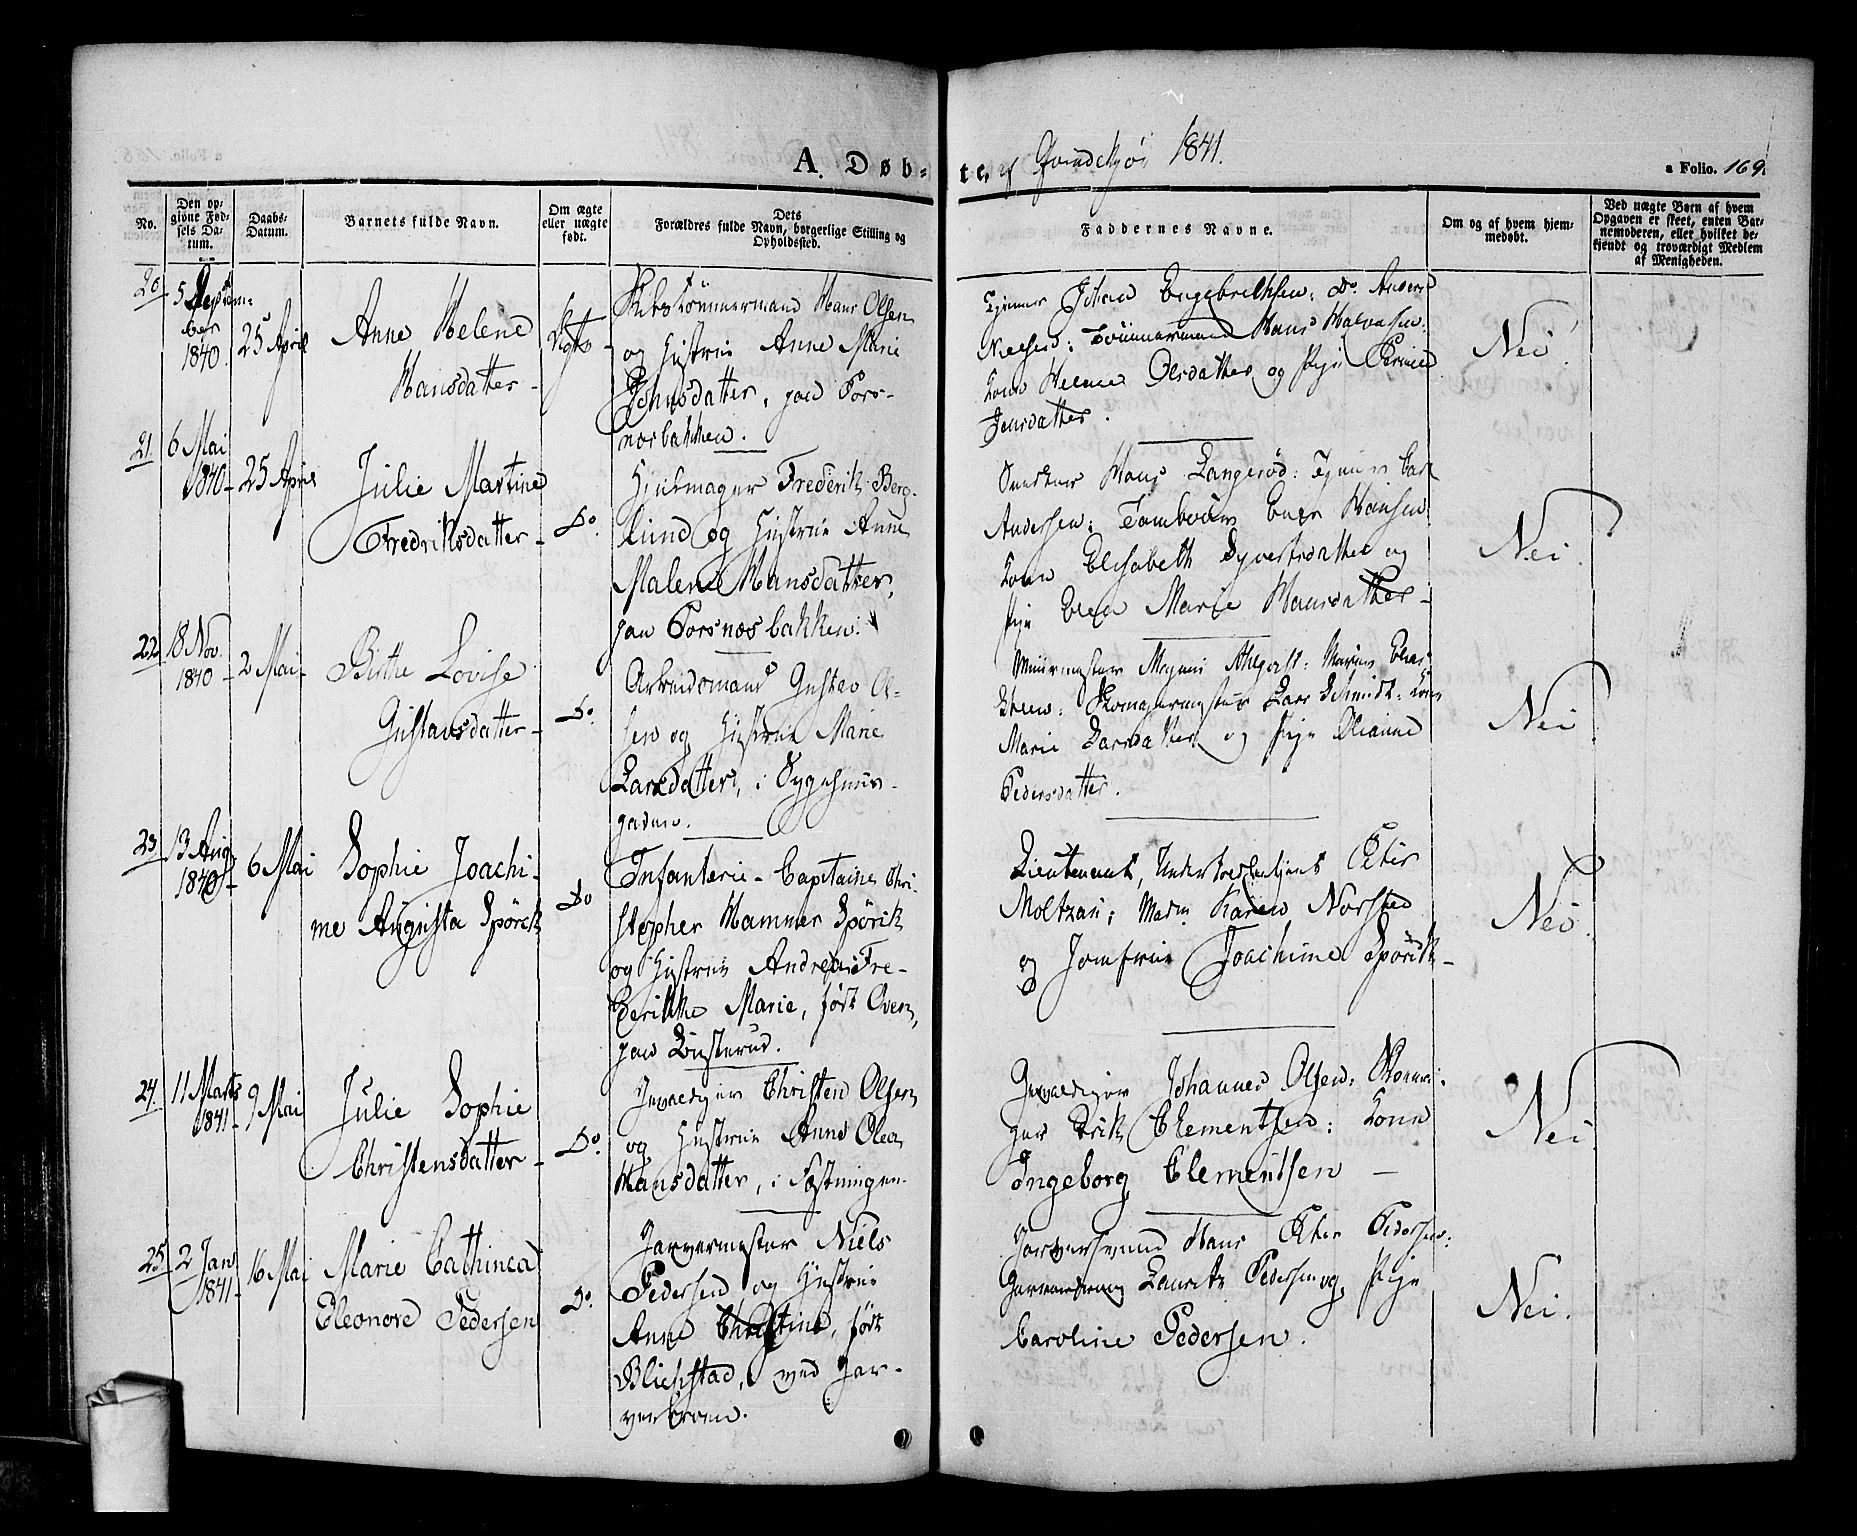 A. Døb-
te, af Qvindekjøn 1841.
a Folio. 169.
No.
Den op-
givne Fød-
sels Da-
tum.
Daabs-
Datum.
Barnets fulde Navn.
Om ægte
eller uægte
født.
Dets
Forældres fulde Navn, borgerlige Stilling og
Opholdssted.
Faddernes Navne.
Om og af hvem hjem-
medøbt.
Ved uægte Børn af hvem
Opgaven er skeet, enten Bar-
nemoderen, eller hvilket be-
kjendt og troværdigt Medlem
af Menigheden.
20
5 Septem-
ber
1840.
25 April
Anne Helene
Hansdatter -
Ægte -
Skibstømmermand Hans Olsen
og Hustrue Anne Marie
Johnsdatter, paa Fors-
næsbakken.
Johan Engebrethsen: Do. Anders
Nielsen: Tømmermand Hans Halvorsen:
Kone Helene Olsdatter og Pige
Jensdatter.
Nei
21.
6 Mai
1840 -
25 April
Julie Martine
Fredriksdatter -
Do.
Hjulmager Frederik Berg-
lund og Hustrue Anne
Malene Hansdatter,
paa Forsnæsbakken.
Snedker Hans Langerød:
Andersen: Tambour Hansen
Kone Elisabeth Syvertsdatter og
Pige Elen Marie Hansdatter -
Nei
22
18 Nov.
1840 -
2 Mai -
Birthe Lovise
Gustavsdatter -
Do.
Arbeidsmand Gustav Ol-
sen og Hustrue Marie
Larsdatter, i Sygehuus-
gaden.
Muurmester Magnus Ahlqvist:
Steen: Skomagermester Lars Schmidt: Kone
Marie Larsdatter og Pige Oleanne
Pedersdatter.
Nei
23
13 Aug.
1840 -
6 Mai
Sophie Joachi-
me Augusta Spörck
Do
Infanterie-Capitaine Chri-
stopher Hammer Spörck
og Hustrue Andrea Fre-
derikke Marie, født Oven,
paa Lusterud.
Lieutenant, Underved Peter
Moltzau; Madm Karen Norsted
og Jomfrue Joachime Spörck -
Nei.
24
11 Marts
1841 -
9 Mai
Julie Sophie
Christensdatter -
Do.
Christen Olsen
og Hustrue Anne Olea
Hansdatter, i Fæstningen.
Johannes Olsen: Skoma-
ger Erik Clementsen: Kone
Ingeborg Clementsen -
Nei
25
2 Jan
1841 -
16 Mai
Marie Cathinca
Eleonore Pedersen
Do.
Farvermester Niels
Pedersen og Hustrue
Anne Christine, født
Blichstad, ved Far-
verbroen.
Farversvend Hans Peter Pedersen:
Lauritz Pedersen og Pige
Caroline Pedersen.
Nei.